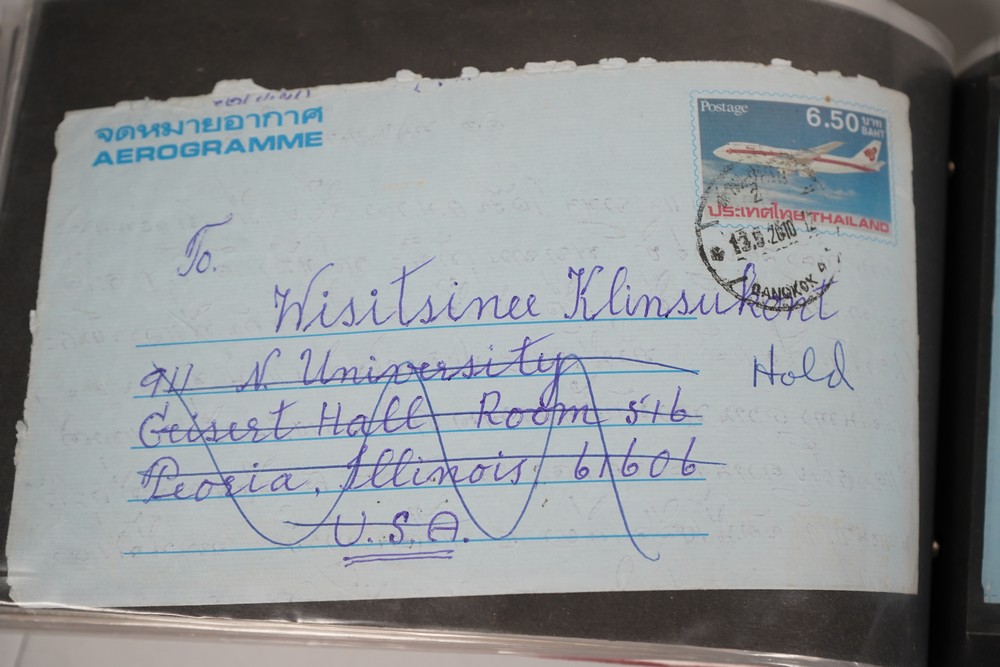 จดหมายอากาศ
AEROGRAMME
Postage
6.50 บาท
BAHT
ประเทศไทย THAILAND
2
13.5.2010
BANGKOK
To.
Wisitsinee Klinsukont
911 N. University
Hold
Geisert Hall Room 516
Peoria, Illinois 61606
U.S.A.